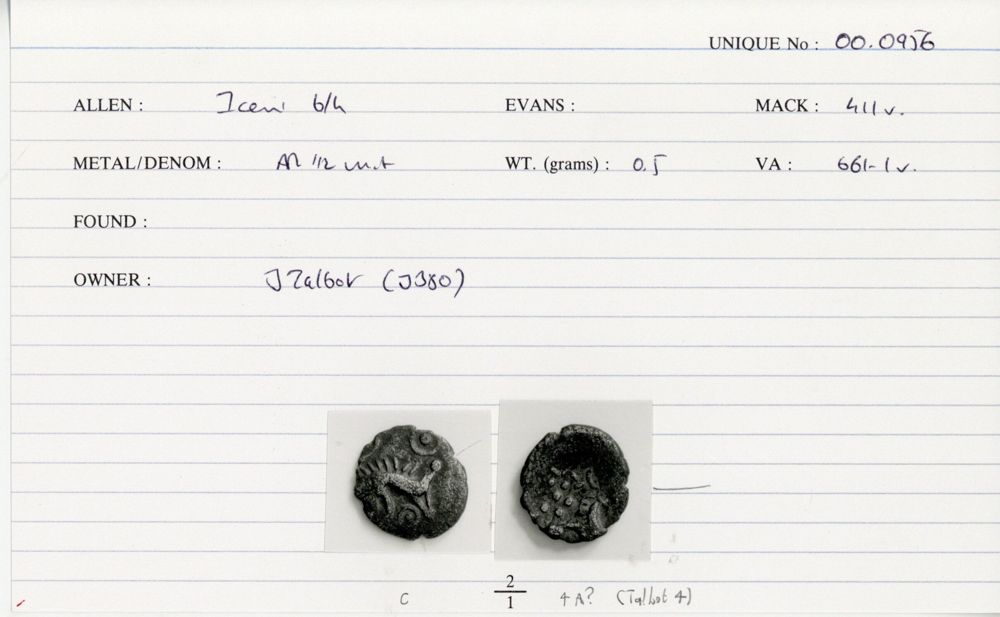 UNIQUE No : 00.0956
ALLEN : Iceni b/h EVANS : MACK : 411v.
METAL/DENOM : AR 1/2 unit WT. (grams) : 0.5 VA : 661-1v.
FOUND :
OWNER : J Talbot (J380)
C 2/1 4A? (Talbot 4)